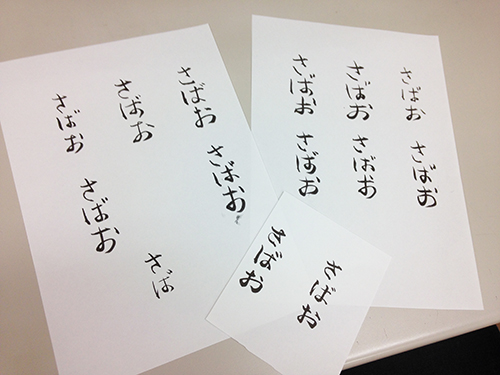 さばお
さばお
さばお
さばお
さばお
さば
さばお
さばお
さばお
さばお
さばお
さばお
さばお
さばお